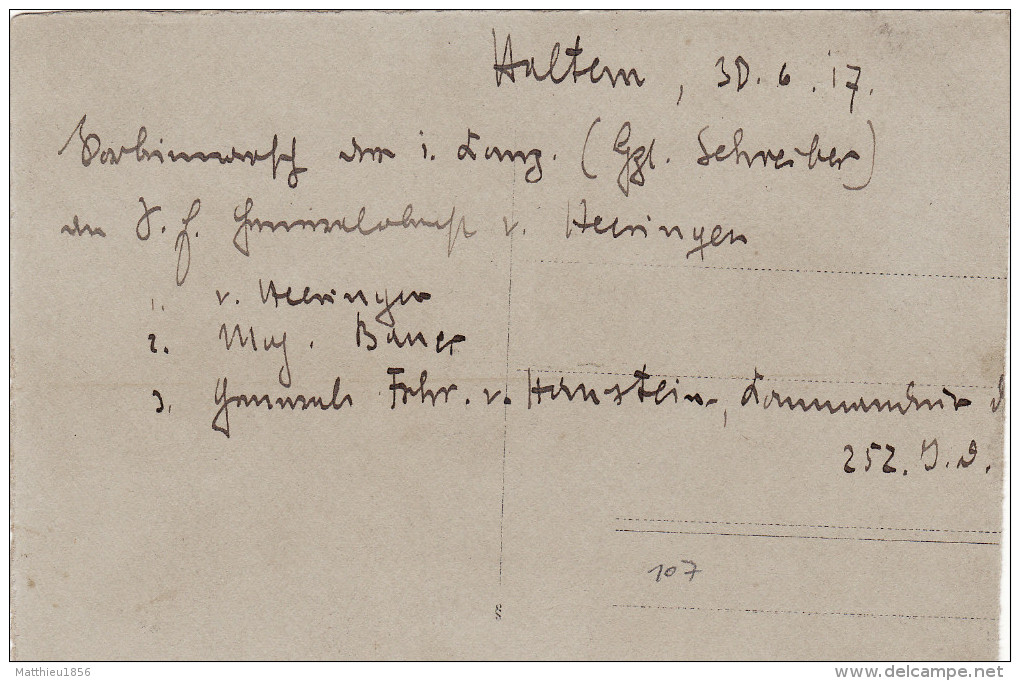 Haltern, 30.6.17.
Vorbeimarsch der i. Komp. (Ggl. Schreiber)
an S. E. Generaloberst v. Heeringen
1. v. Heeringen
2. Maj. Bauer
3. General Frhr. v. Hanstein, Kommandeur d
252. I.D.
107
Matthieu1856
www.delcampe.net